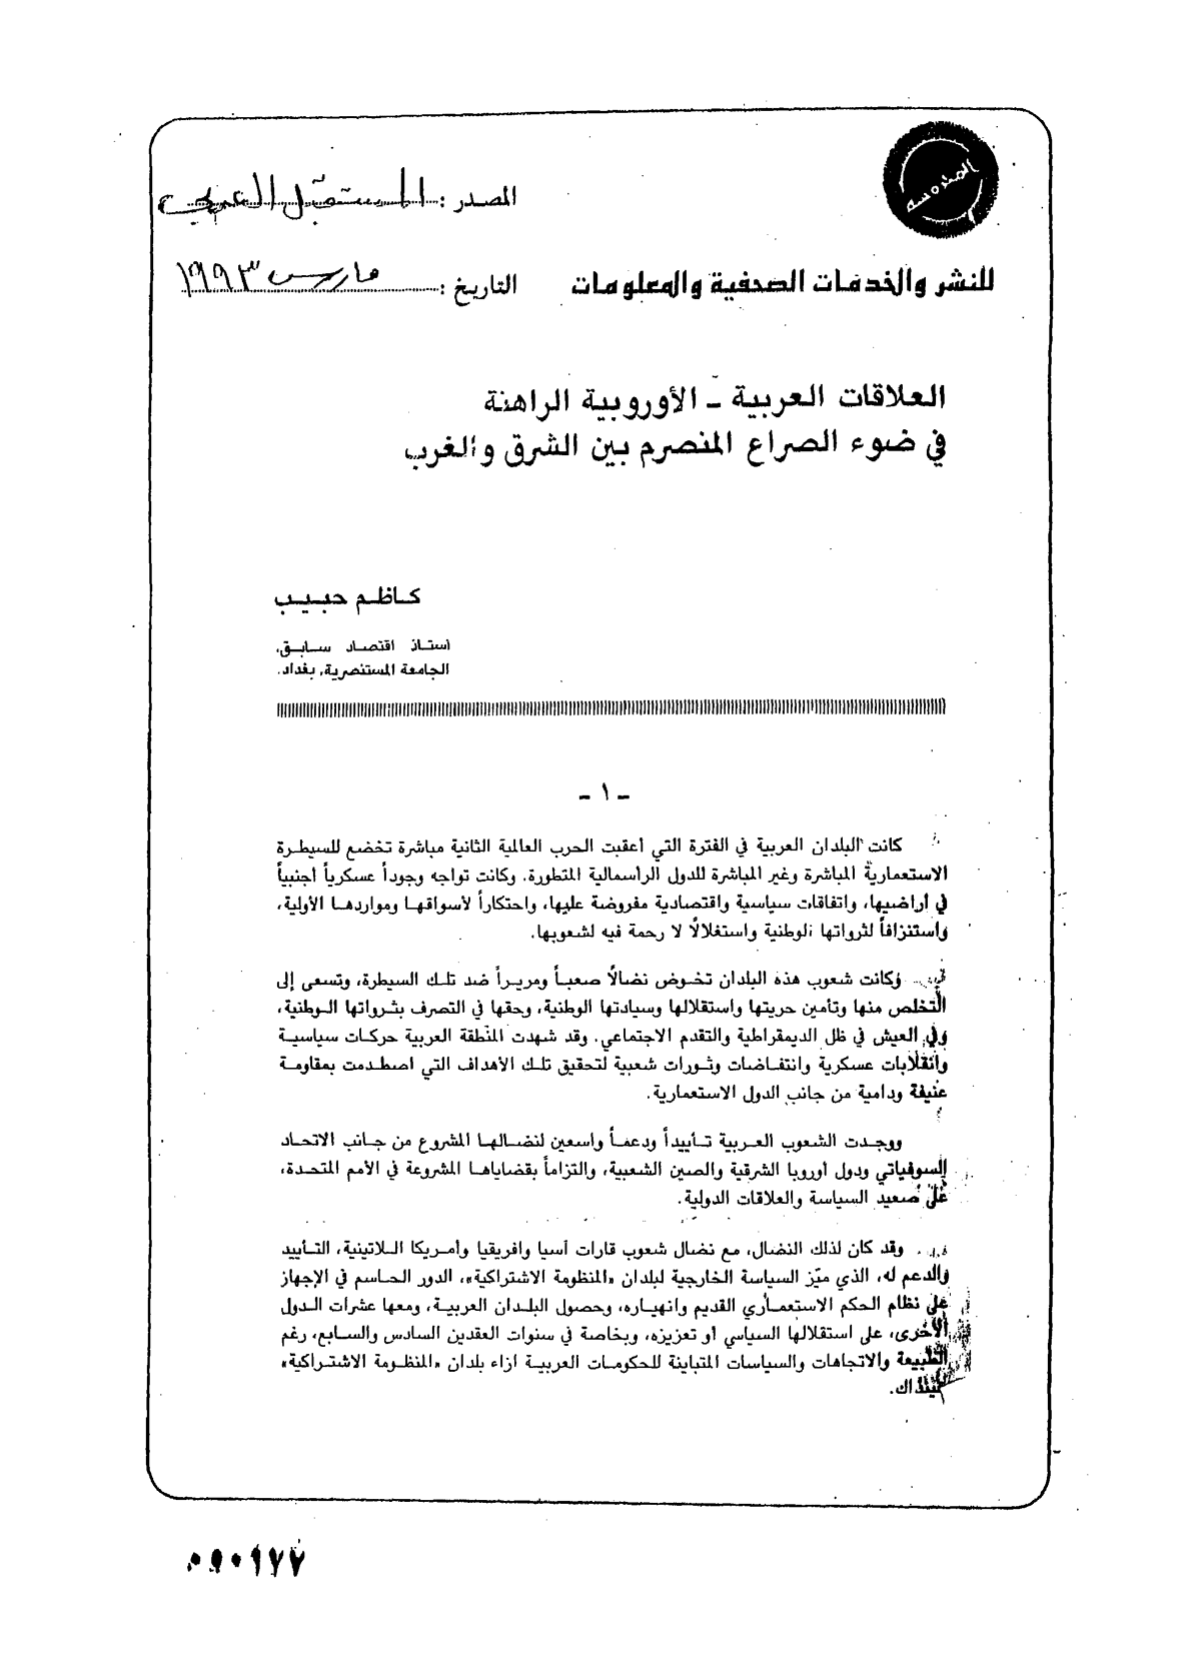 المصدر : المستقبل العربي
للنشر والخدمات الصحفية والمعلومات
التاريخ : مارس ١٩٩٣
العلاقات العربية ـ الأوروبية الراهنة
في ضوء الصراع المنصرم بين الشرق والغرب
كاظم حبيب
استاذ اقتصاد سابق،
الجامعة المستنصرية، بغداد.
ـ ١ ـ
كانت البلدان العربية في الفترة التي أعقبت الحرب العالمية الثانية مباشرة تخضع للسيطرة
الاستعمارية المباشرة وغير المباشرة للدول الرأسمالية المتطورة. وكانت تواجه وجوداً عسكرياً أجنبياً
في أراضيها، واتفاقات سياسية واقتصادية مفروضة عليها، واحتكاراً لأسواقها ومواردها الأولية،
واستنزافاً لثرواتها الوطنية واستغلالاً لا رحمة فيه لشعوبها.
وكانت شعوب هذه البلدان تخوض نضالاً صعباً ومريراً ضد تلك السيطرة، وتسعى إلى
التخلص منها وتأمين حريتها واستقلالها وسيادتها الوطنية، وحقها في التصرف بثرواتها الوطنية،
وفي العيش في ظل الديمقراطية والتقدم الاجتماعي. وقد شهدت المنطقة العربية حركات سياسية
وانقلابات عسكرية وانتفاضات وثورات شعبية لتحقيق تلك الأهداف التي اصطدمت بمقاومة
عنيفة ودامية من جانب الدول الاستعمارية.
ووجدت الشعوب العربية تأييداً ودعماً واسعين لنضالها المشروع من جانب الاتحاد
السوفياتي ودول أوروبا الشرقية والصين الشعبية، والتزاماً بقضاياها المشروعة في الأمم المتحدة،
على صعيد السياسة والعلاقات الدولية.
وقد كان لذلك النضال، مع نضال شعوب قارات آسيا وافريقيا وأمريكا اللاتينية، التأييد
والدعم له، الذي ميّز السياسة الخارجية لبلدان «المنظومة الاشتراكية»، الدور الحاسم في الإجهاز
على نظام الحكم الاستعماري القديم وانهياره، وحصول البلدان العربية، ومعها عشرات الدول
الأخرى، على استقلالها السياسي أو تعزيزه، وبخاصة في سنوات العقدين السادس والسابع، رغم
الطبيعة والاتجاهات والسياسات المتباينة للحكومات العربية ازاء بلدان «المنظومة الاشتراكية»
حينذاك.